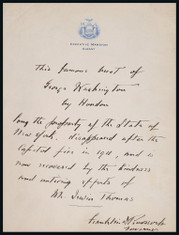 EXECUTIVE MANSION
ALBANY
This famous bust of
George Washington
by Houdon
long the property of the State of
New York. disappeared after the
Capitol fire in 1911, and is
now recovered by the kindness
and untiring efforts of
Mr. Thomas
Franklin D Roosevelt
Governor